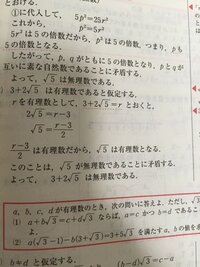 とおける。
①に代入して, 5p²=25r²
これから, p²=5r²
5r² は5の倍数だから, p² は5の倍数, つまり, p も
5の倍数となる。
したがって, p, q がともに5の倍数となり, p と q が
互いに素な自然数であることに矛盾する。
よって, √5 は無理数である。
3+2√5 は有理数であると仮定する。
r を有理数として, 3+2√5=r とおくと,
2√5=r−3
√5=(r−3)/2
(r−3)/2 は有理数だから, √5 は有理数となる。
このことは, √5 が無理数であることに矛盾する。
よって, 3+2√5 は無理数である。
a, b, c, d が有理数のとき, 次の問いに答えよ。ただし, √3
(1) a+b√3=c+d√3 ならば, a=c かつ b=d であるこ
(2) a(√3−1)−b(3+√3)=3+5√3 を満たす a, b の値を求
) b≠d と仮定する。 (b−d)√3=c−a